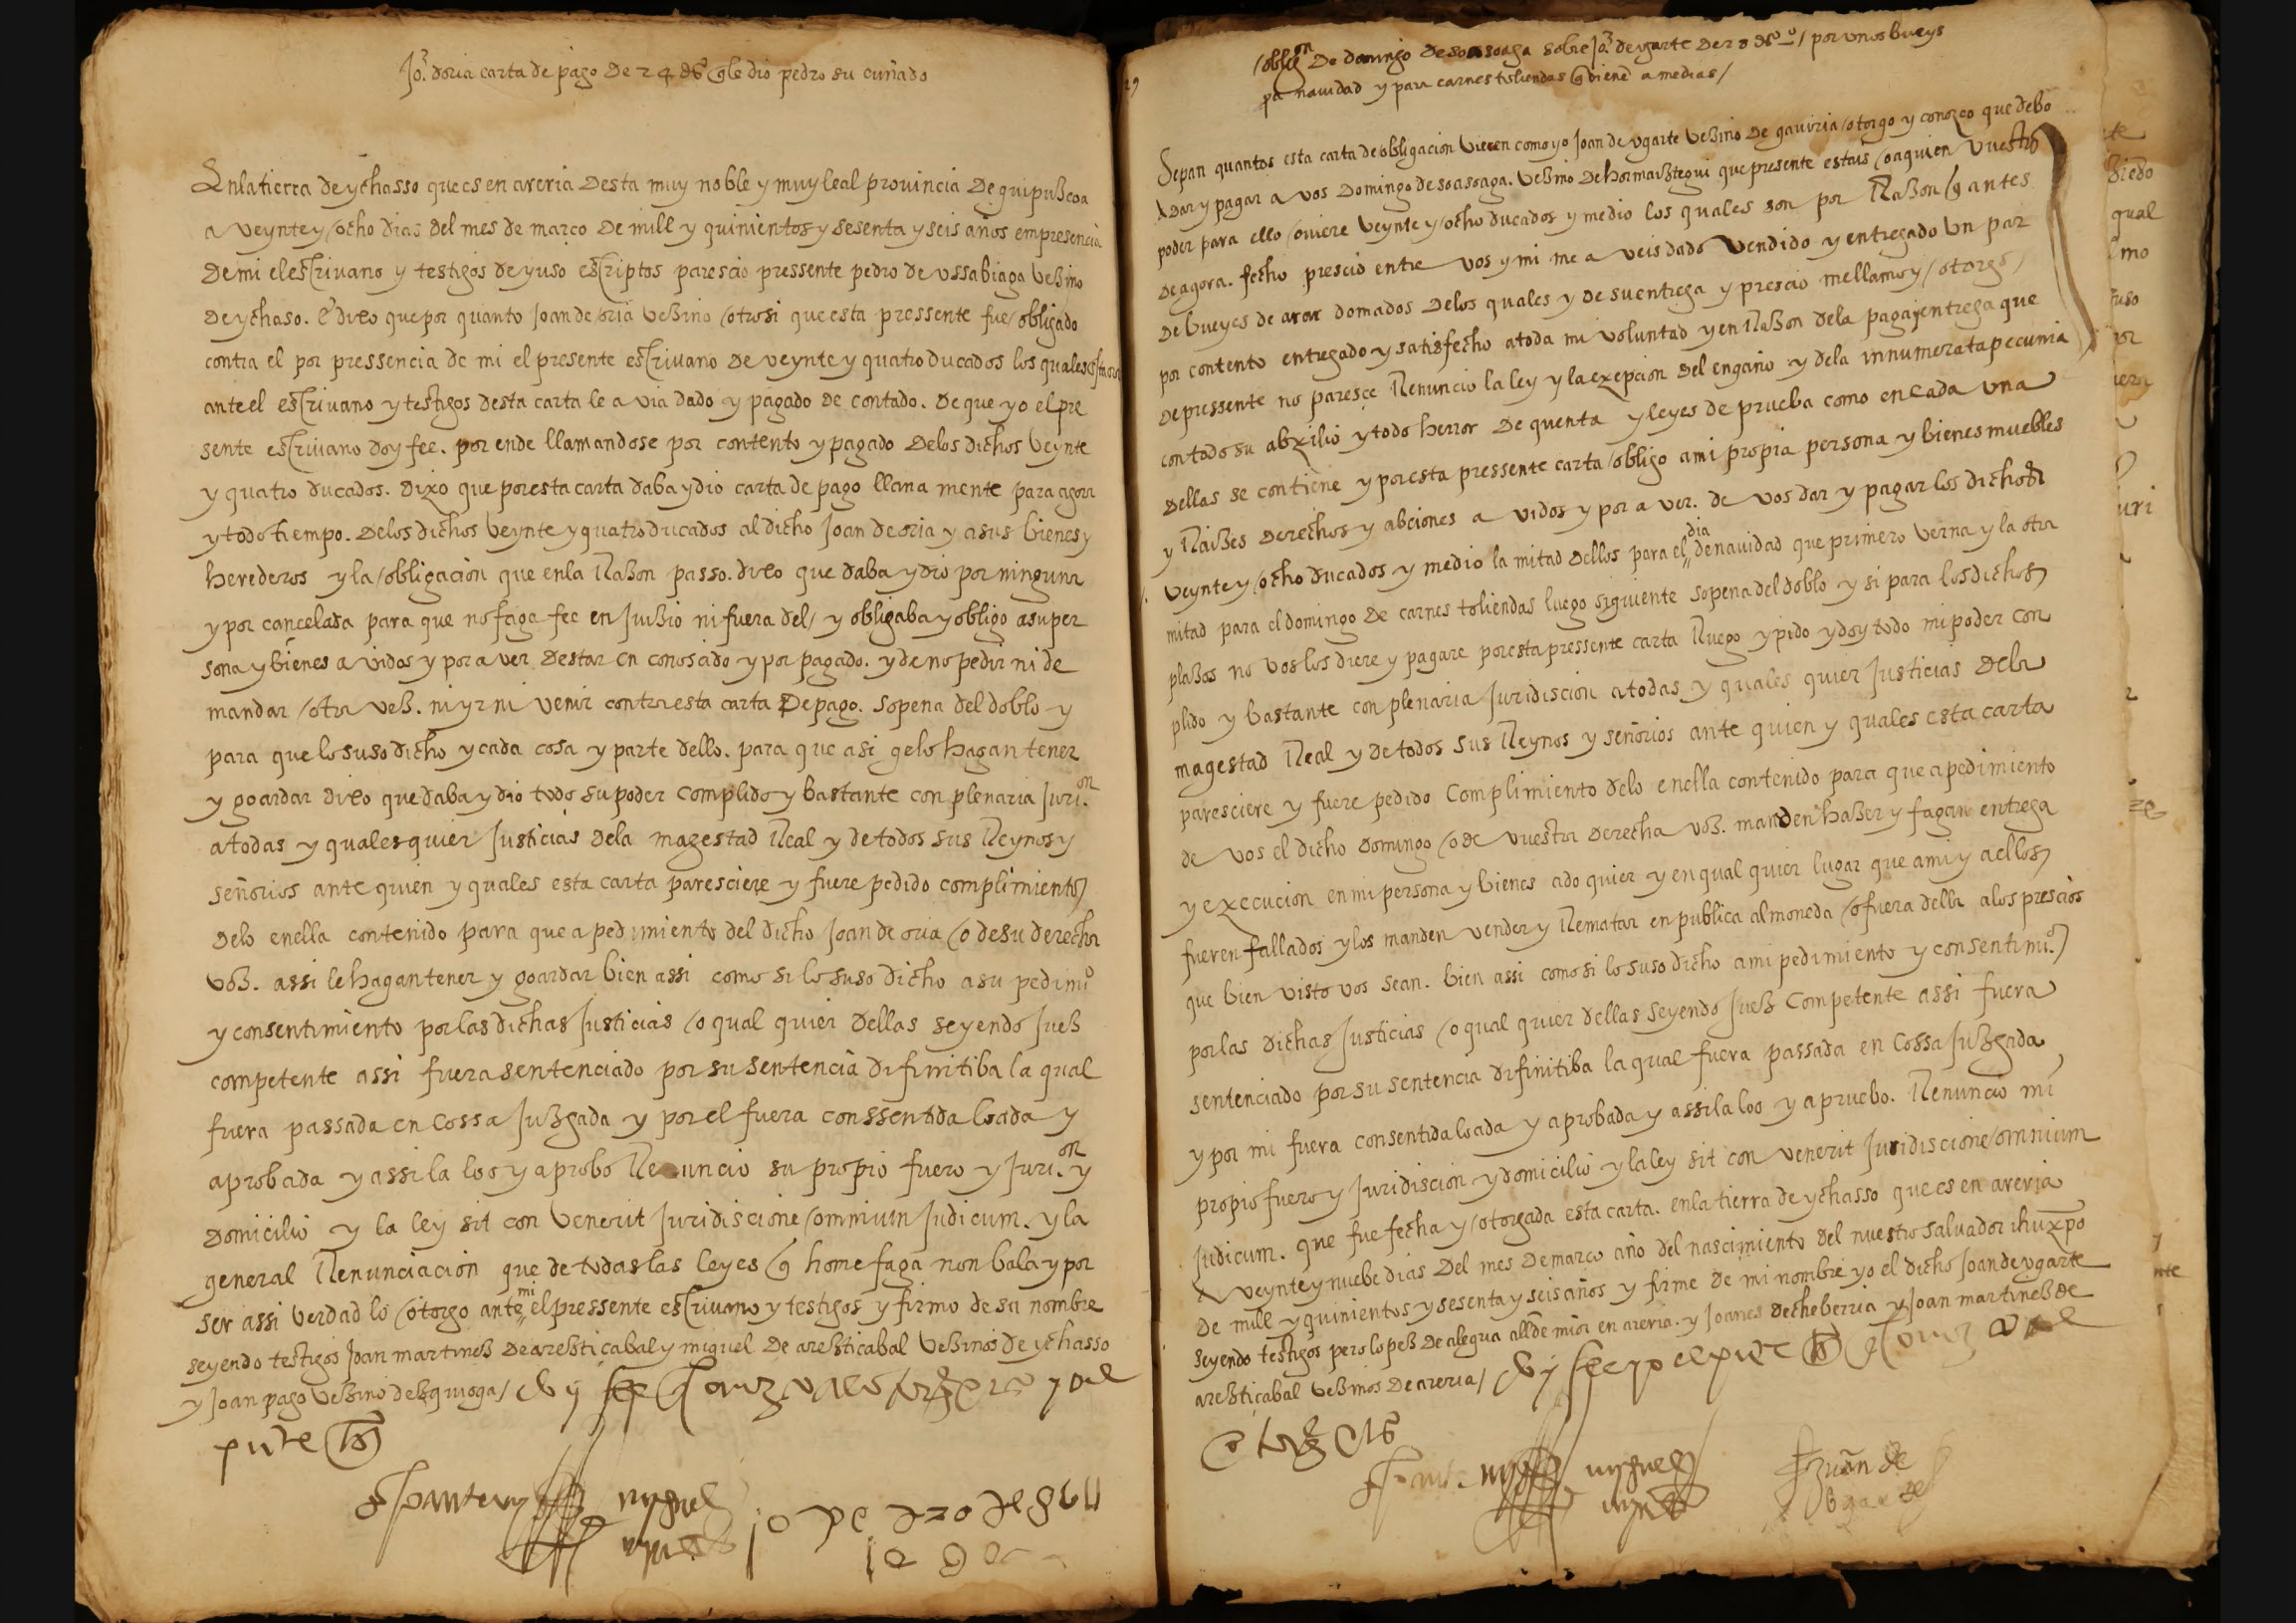 Jo. doria carta de pago de 24 ds q le dio pedro su cuñado
En la tierra de ychasso que es en areria desta muy noble y muy leal prouincia de guipuzcoa
a veynte y ocho dias del mes de março de mill y quinientos y sesenta y seis años en presencia
de mi el escriuano y testigos de yuso escriptos parescio pressente pedro de ussabiaga vezino
de ychaso. e dixo que por quanto Joan de oria vezino otrosi que esta pressente fue obligado
contra el por pressencia de mi el presente escriuano de veynte y quatro ducados los quales
ante el escriuano y testigos desta carta le a via dado y pagado de contado. de que yo el pre
sente escriuano doy fee. por ende llamandose por contento y pagado de los dichos veynte
y quatro ducados. dixo que por esta carta daba y dio carta de pago llana mente para agora
y todo tiempo. de los dichos veynte y quatro ducados al dicho Joan de oria y a sus bienes y
herederos y la obligacion que en la Razon passo. dixo que daba y dio por ninguna
y por cancelada para que no faga fee en Juizio ni fuera del / y obligaba y obligo a su per
sona y bienes a vidos y por a ver destar en conoscido y por pagado. y de no pedir ni de
mandar otra vez. ni yr ni venir contra esta carta de pago. so pena del doblo y
para que lo suso dicho y cada cosa y parte dello. para que asi gelo hagan tener
y goardar dixo que daba y dio todo su poder complido y bastante con plenaria Juri.on
a todas y quales quier Justicias de la magestad Real y de todos sus Reynos y
señorios ante quien y quales esta carta paresciere y fuere pedido complimiento
delo en ella contenido para que a pedimiento del dicho Joan de oria o de su derecha
voz. assi le hagan tener y goardar bien assi como si lo suso dicho a su pedimio
y consentimiento por las dichas Justicias o qual quier dellas seyendo Juez
competente assi fuera sentenciado por su sentencia difinitiba la qual
fuera passada en cossa Juzgada y por el fuera conssentida loada y
aprobada y assi la loo y aprobo Renuncio su propio fuero y Juri.on y
domicilio y la ley sit con venerit Juridiscione omnium Judicum. y la
general Renunciacion que de todas las leyes q home faga non bala y por
ser assi verdad lo otorgo ante mi el pressente escriuano y testigos y firmo de su nombre
seyendo testigos Joan martinez de arezticabal y miguel de arezticabal vezinos de ychasso
y Joan pago vezino de ezquioga / doy fee
oblig.on de domingo de soasoaga sobre Jo. de ugarte de 28 ds / por unos bueys
pa nauidad y para carnes toliendas q viene a medias /
Sepan quantos esta carta de obligacion vieren como yo Joan de ugarte vezino de gauiria otorgo y conozco que debo
a dar y pagar a vos domingo de soasoaga. vezino de hormaiztegui que presente estais o a quien vuestro
poder para ello oviere veynte y ocho ducados y medio los quales son por Razon q antes
de agora. fecho prescio entre vos y mi me a veis dado vendido y entregado un par
de bueyes de arar domados de los quales y de su entrega y prescio me llamo y otorgo
por contento entregado y satisfecho a toda mi voluntad y en Razon de la paga y entrega que
de pressente no paresce Renuncio la ley y la exepcion del engaño y de la innumerata pecunia
con todo su abxilio y todo herror de quenta y leyes de prueba como en cada una
dellas se contiene y por esta pressente carta obligo a mi propia persona y bienes muebles
y Raizes derechos y abciones a vidos y por a ver. de vos dar y pagar los dichos
veynte y ocho ducados y medio la mitad dellos para el dia de nauidad que primero verna y la otra
mitad para el domingo de carnes toliendas luego siguiente so pena del doblo y si para los dichos
plazos no vos los diere y pagare por esta pressente carta Ruego y pido y doy todo mi poder con
plido y bastante con plenaria Juridiscion a todas y quales quier Justicias de la
magestad Real y de todos sus Reynos y señorios ante quien y quales esta carta
paresciere y fuere pedido complimiento delo en ella contenido para que a pedimiento
de vos el dicho domingo o de vuestra derecha voz. manden hazer y fagan entrega
y execucion en mi persona y bienes ado quier y en qual quier lugar que a mi y a ellos
fueren fallados y los manden vender y Rematar en publica almoneda o fuera della a los prescios
que bien visto vos sean. bien assi como si lo suso dicho a mi pedimiento y consentimi.o
por las dichas Justicias o qual quier dellas seyendo Juez competente assi fuera
sentenciado por su sentencia difinitiba la qual fuera passada en cossa Juzgada
y por mi fuera consentida loada y aprobada y assi la loo y apruebo. Renuncio mi
propio fuero y Juridiscion y domicilio y la ley sit con venerit Juridiscione omnium
Judicum. que fue fecha y otorgada esta carta. en la tierra de ychasso que es en areria
a veynte y nuebe dias del mes de março año del nascimiento del nuestro salvador ihuxpo
de mill y quinientos y sesenta y seis años y firme de mi nombre yo el dicho Joan de ugarte
seyendo testigos pero lopez de alegria allde mior en areria. y Joanes de echeberria y Joan martinez de
arezticabal vezinos de areria / doy fee yo el
Juan de
ugarte